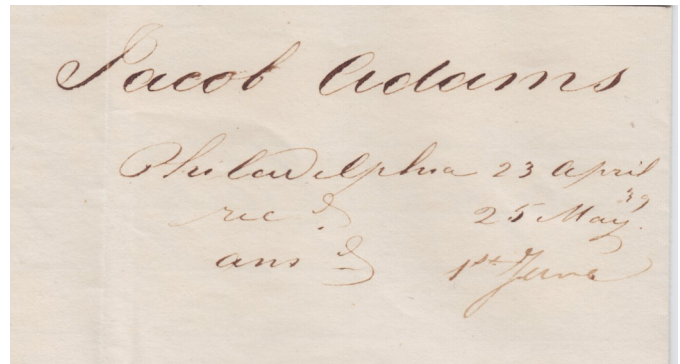 Jacob Adams
Philadelphia 23 April
39
rec d 25 May.
ans d 1st June